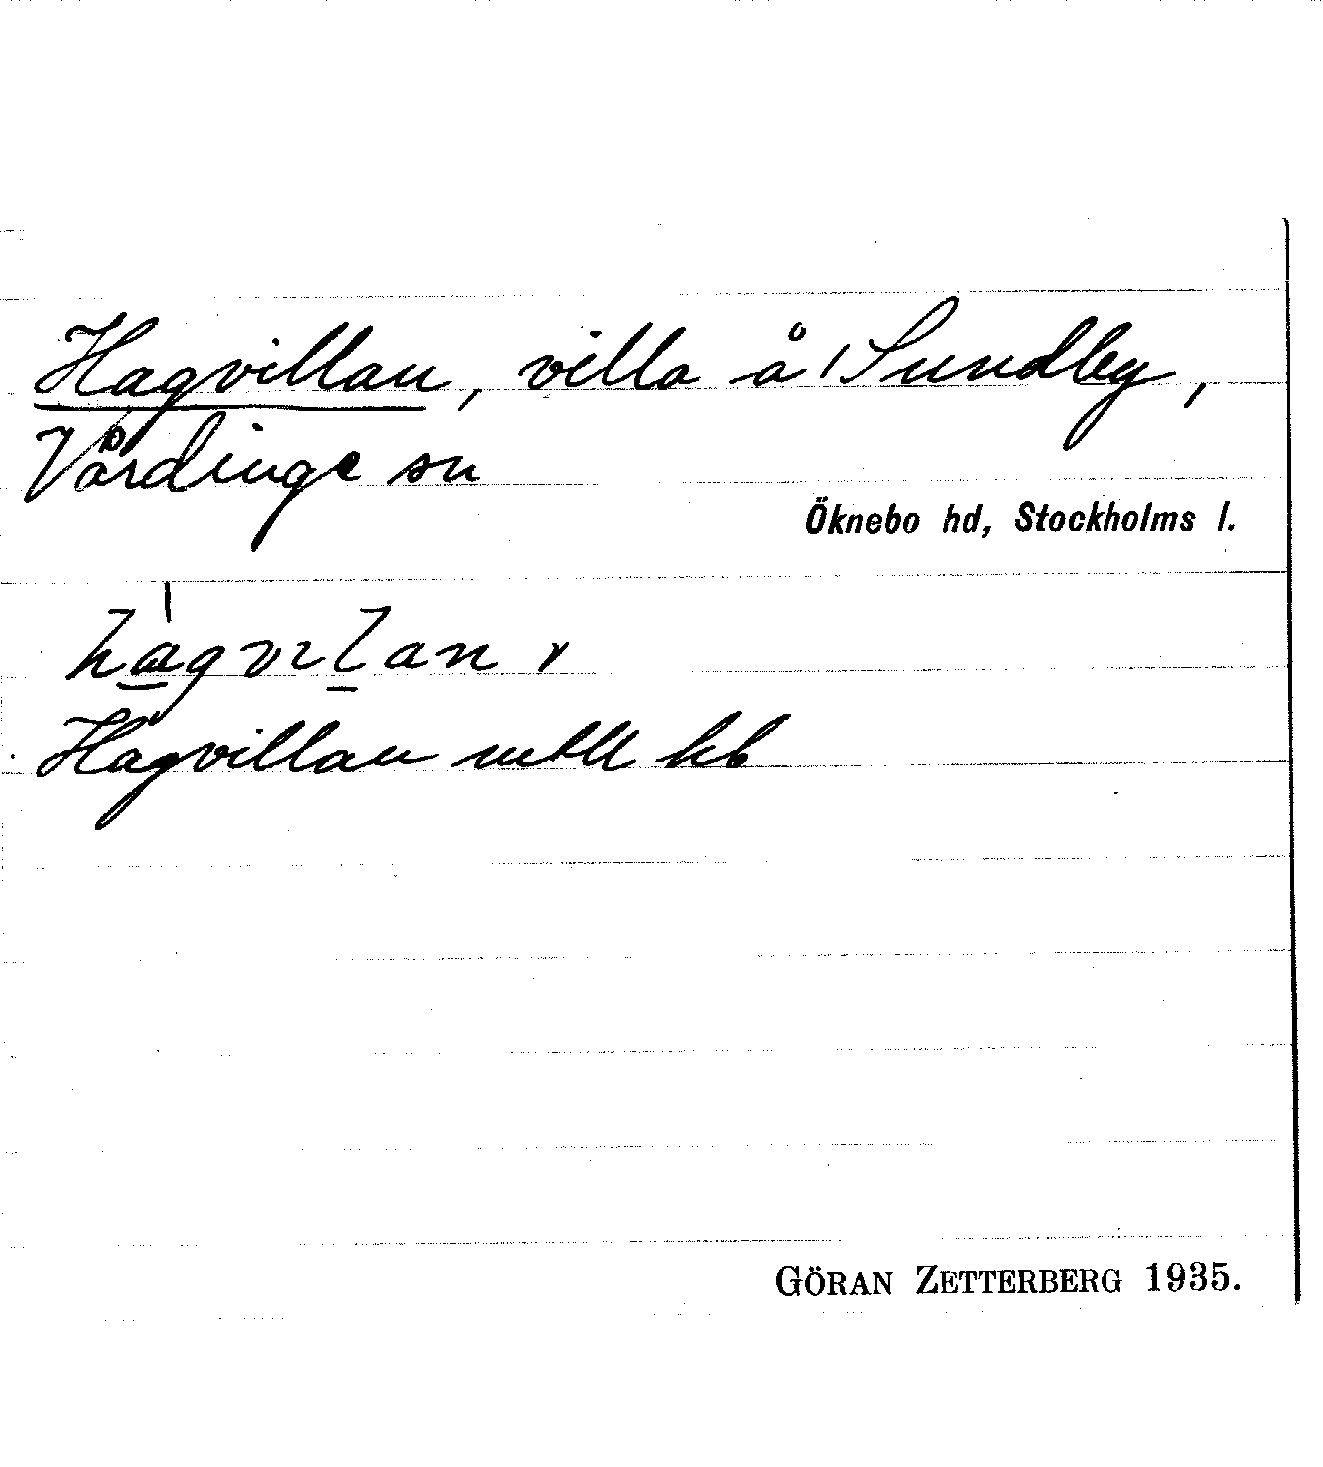 Hagvillan, villa å Sundby,
Vårdinge sn
Öknebo hd, Stockholms l.
hagvilan v
Hagvillan mtll kb
GÖRAN ZETTERBERG 1935.